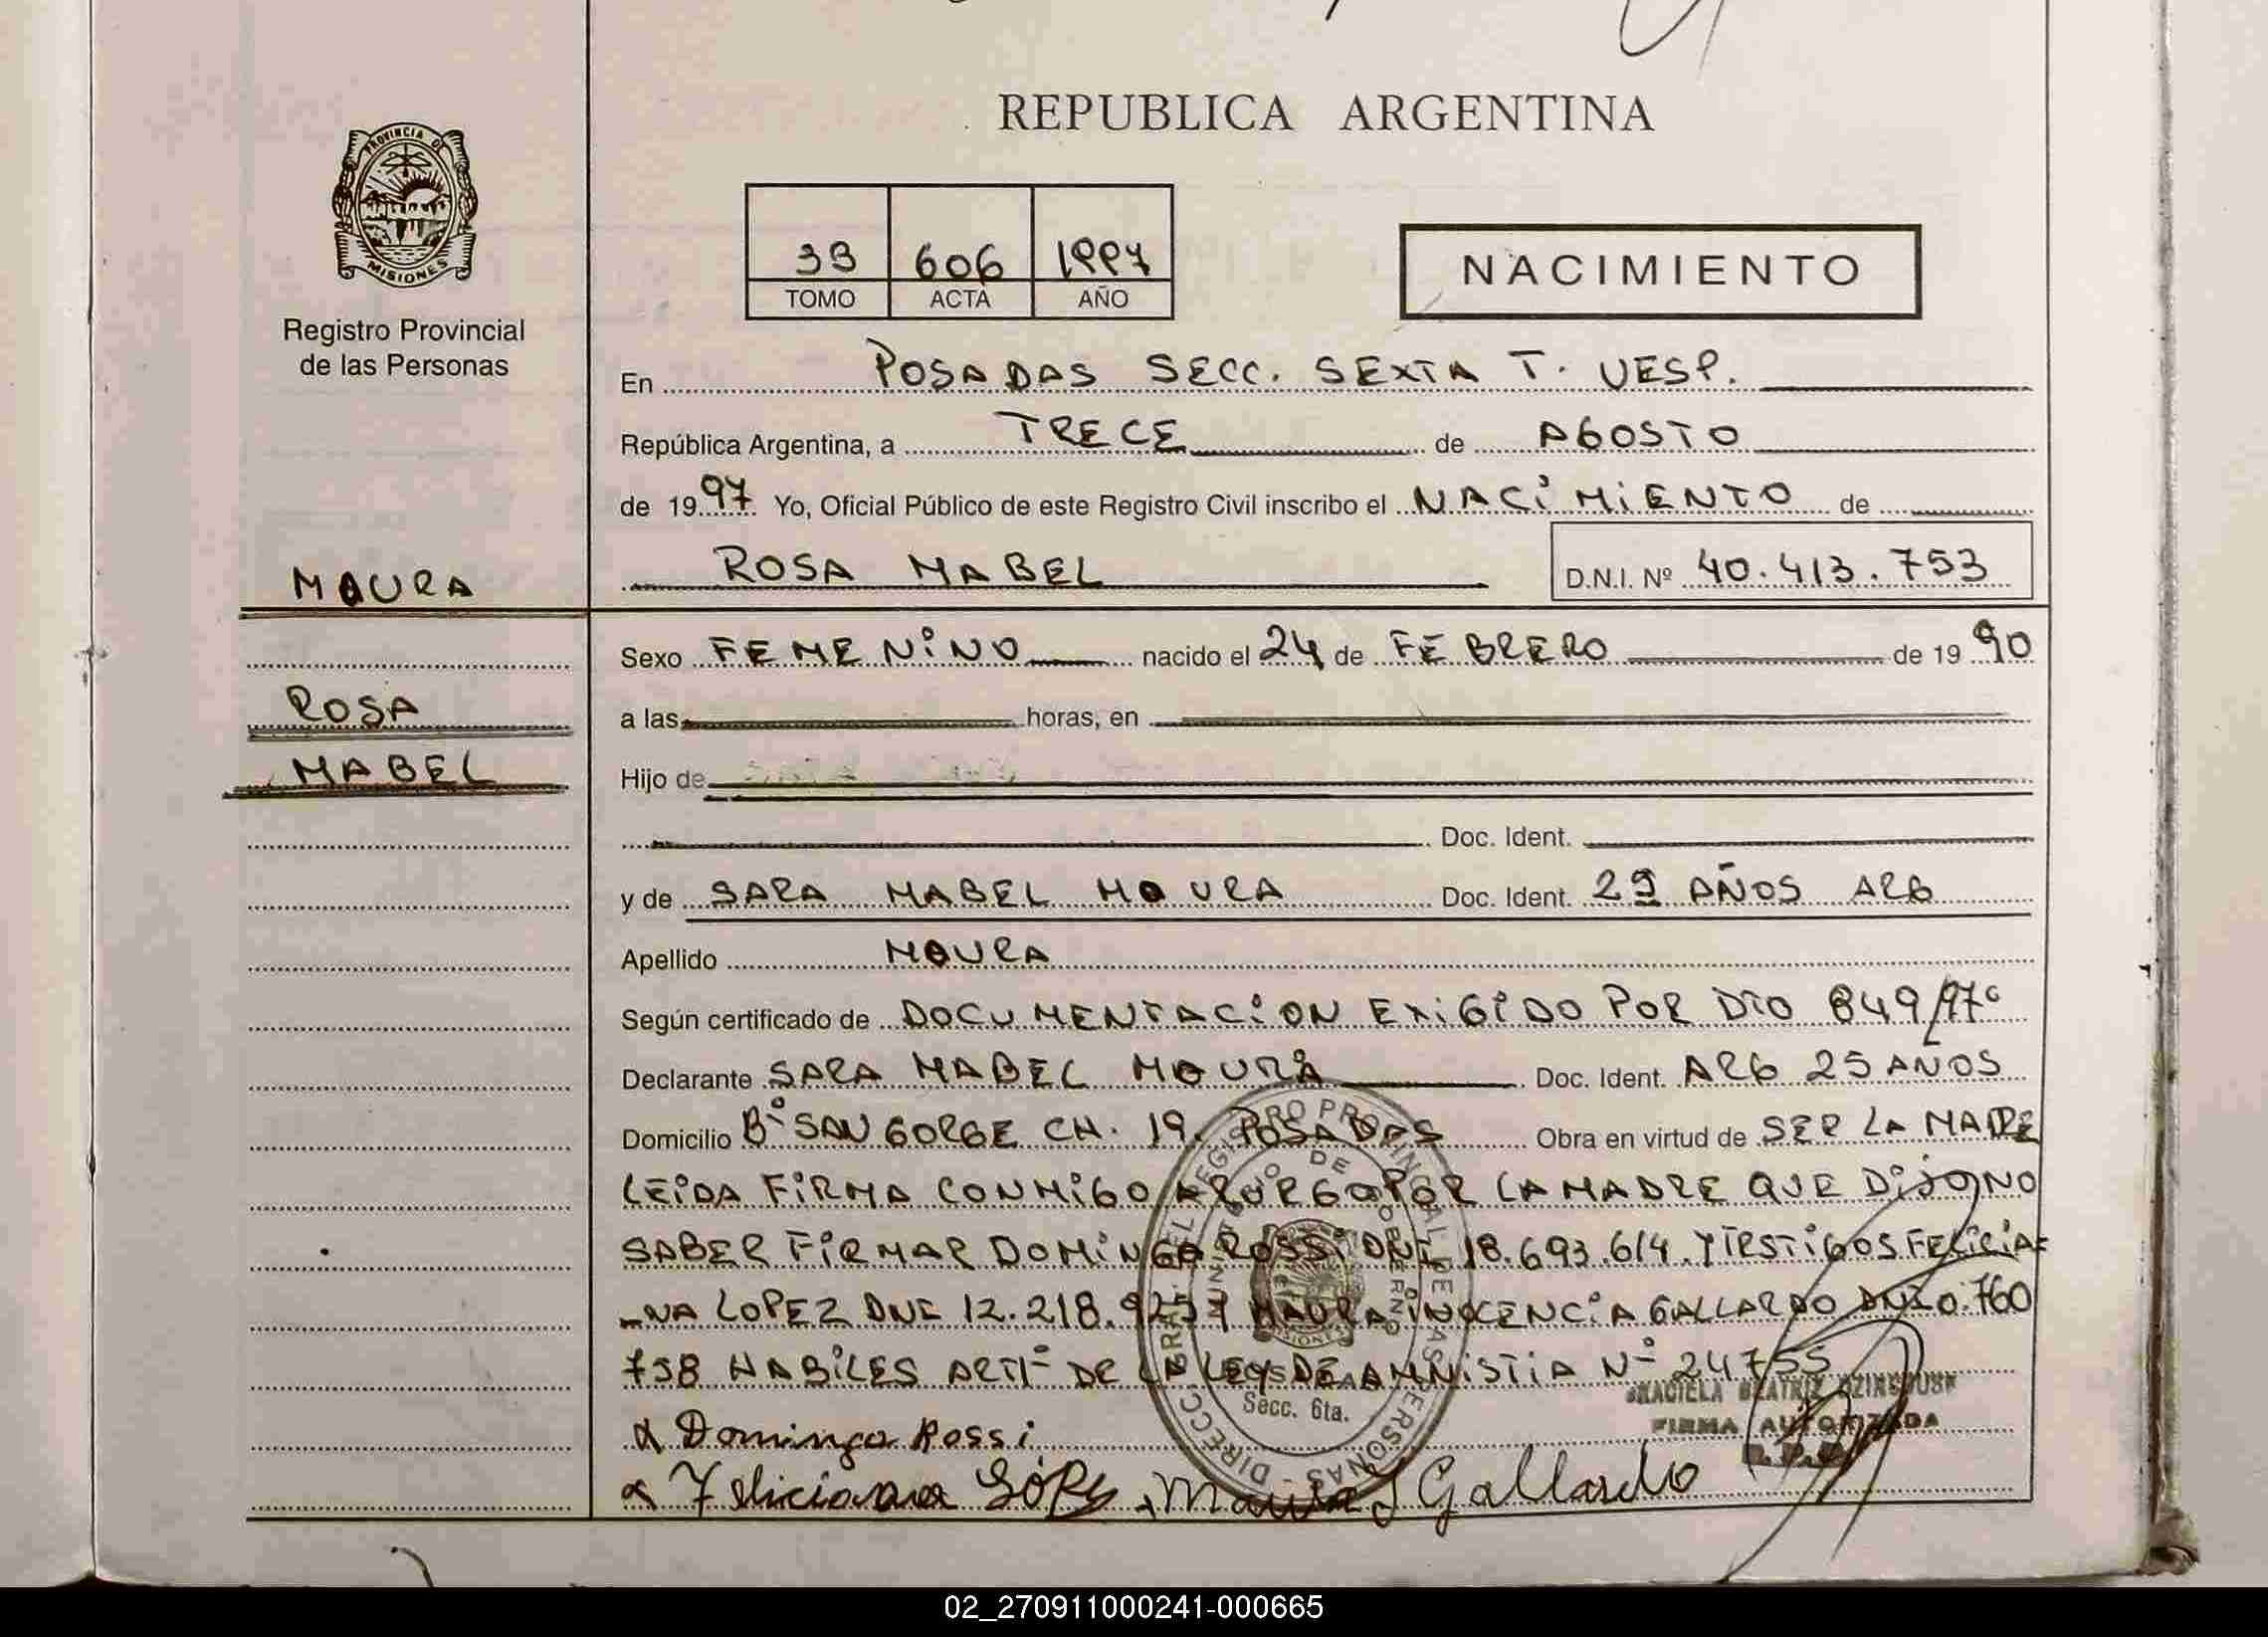 REPUBLICA ARGENTINA
PROVINCIA DE
MISIONES
Registro Provincial
de las Personas
39 606 1997
TOMO ACTA AÑO
NACIMIENTO
En POSADAS SECC. SEXTA T. VESP.
República Argentina, a TRECE de AGOSTO
de 1997 Yo, Oficial Público de este Registro Civil inscribo el NACIMIENTO de
MOURA
ROSA MABEL D.N.I. Nº 40.413.753
Sexo FEMENINO nacido el 24 de FEBRERO de 1990
ROSA
a las horas, en
MABEL
Hijo de
Doc. Ident.
y de SARA MABEL MOURA Doc. Ident. 29 AÑOS ARG
Apellido MOURA
Según certificado de DOCUMENTACION EXIGIDO POR DTO 849/97
Declarante SARA MABEL MOURA Doc. Ident. ARG 25 AÑOS
Domicilio Bº SAN GORGE CH. 19. POSADAS Obra en virtud de SER LA MADRE
LEIDA FIRMA CONMIGO A RUEGO POR LA MADRE QUE DIJO NO
SABER FIRMAR DOMINGO ROSSI DNI 18.693.614. Y TESTIGOS FELICIA=
_NA LOPEZ DNI 12.218.925 Y MAURA INOCENCIA GALLARDO DNI 0.760
738 HABILES ART 1º DE LA LEY DE AMNISTIA Nº 24755
Secc. 6ta.
GRACIELA BEATRIZ
FIRMA AUTORIZADA
R.P.P.
Domingo Rossi
Feliciana López Maura I Gallardo
02_270911000241-000665